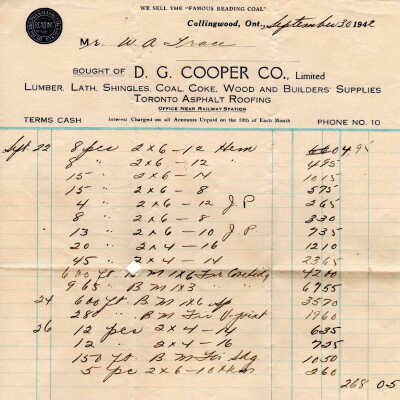 WE SELL THE "FAMOUS READING COAL"
Collingwood, Ont., September 30 1942
Mr. W. A.
BOUGHT OF D. G. COOPER CO., Limited
LUMBER, LATH, SHINGLES, COAL, COKE, WOOD AND BUILDERS' SUPPLIES
TORONTO ASPHALT ROOFING
OFFICE NEAR RAILWAY STATION
TERMS CASH Interest Charged on all Accounts Unpaid on the 10th of Each Month PHONE NO. 10
Sept 22 8 pcs 2 x 6 - 12 Hem 4.95
8 " 2 x 6 - 12 " 495
15 " 2 x 6 - 14 1015
15 " 2 x 6 - 8 575
4 " 2 x 6 - 12 J P 265
8 " 2 x 6 - 8 330
13 " 2 x 6 - 10 J P 735
20 " 2 x 4 - 16 1210
45 " 2 x 4 - 14 2365
600 ft B M 1x6 4200
965 " B M 1x3 " 6755
24 600 ft B M 1x6 Sp 3570
280 " B M Fir V-joint 1960
26 12 pcs 2 x 4 - 14 635
12 " 2 x 4 - 16 725
150 ft B M Fir Sdg 1050
5 pc 2 x 6 - 10 260
268 05